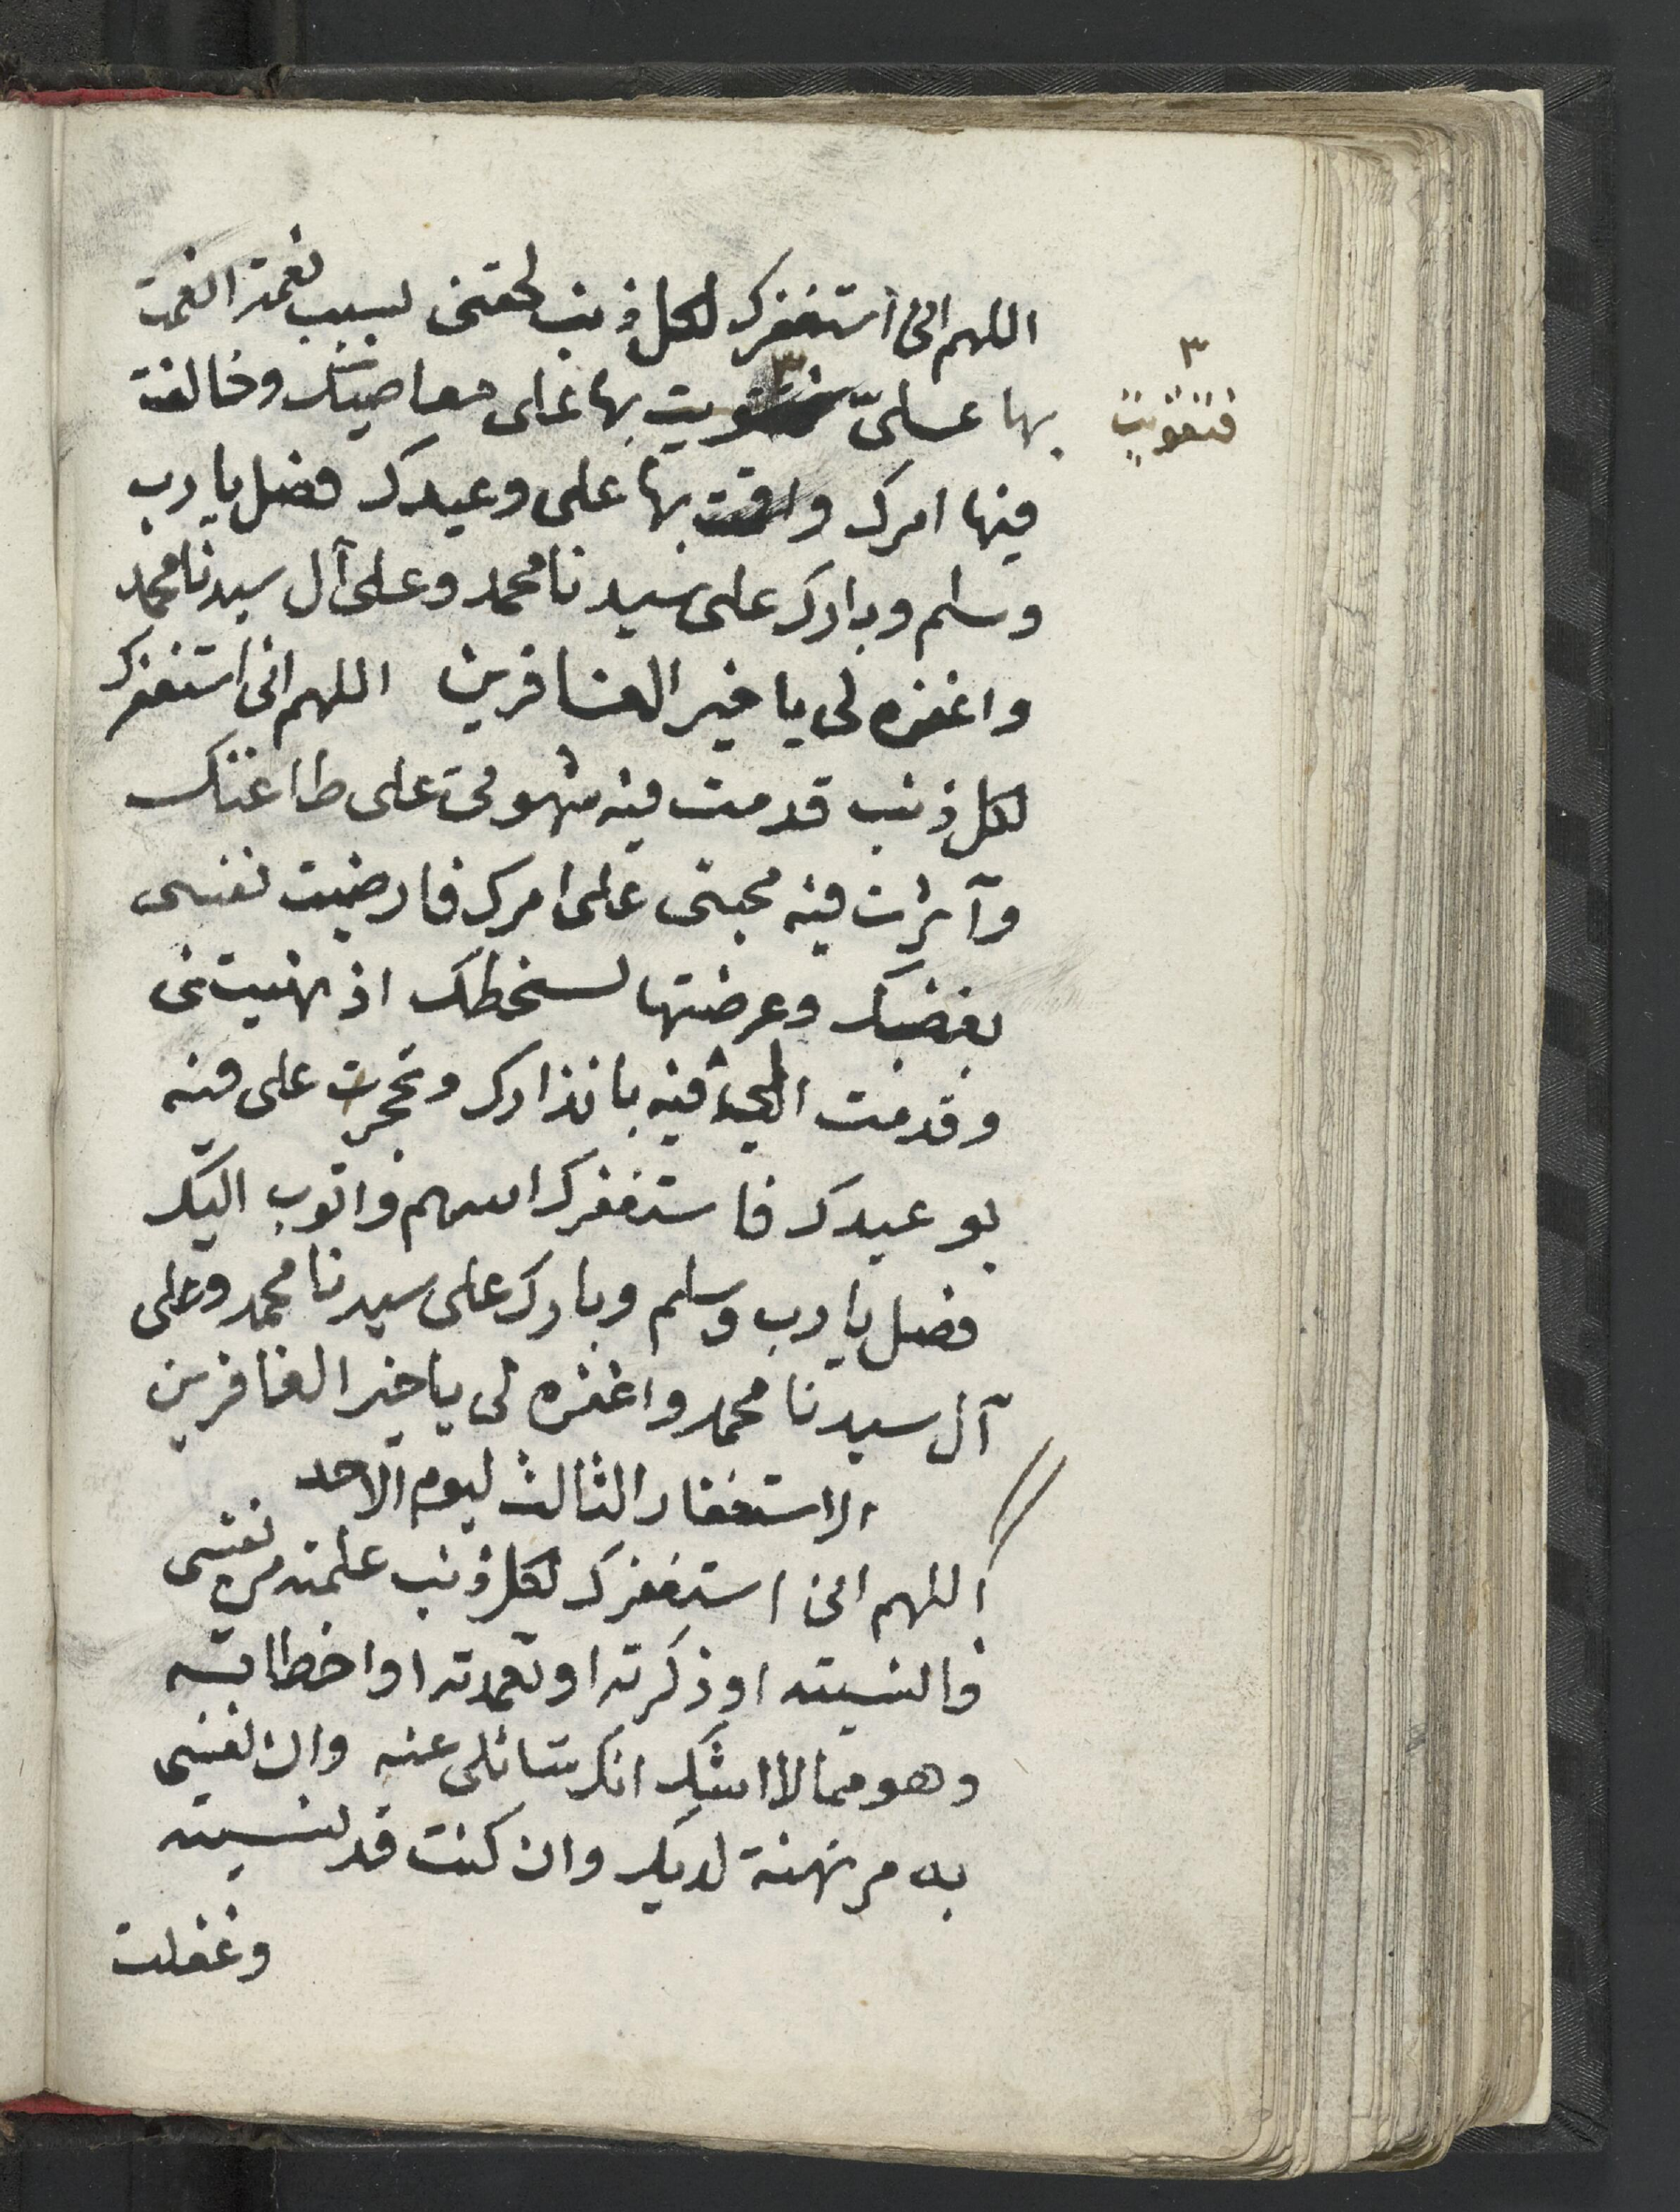 اللهم انى استغفرك لكل ذنب لحقنى بسبب نعمة انعمت
بها عـلىّ فتقويت بها على معاصيك وخالفت
٣
فتقويت
فيها امرك واقمت بها على وعيدك فصل يا رب
وسلم وبارك على سيدنا محمد وعلى آل سيدنا محمد
واغفره لى يا خير الغافرين اللهم انى استغفرك
لكل ذنب قدمت فيه شهوتى على طاعتك
وآثرت فيه محبتى على امرك فارضيت نفسى
بغضبك وعرضتها لسخطك اذ نهيتنى
وقدمت الىّ فيه بانذارك وتحجرت على فيه
بوعيدك فاستغفرك اللهم واتوب اليك
فصل يا رب وسلم وبارك على سيدنا محمد وعلى
آل سيدنا محمد واغفره لى يا خير الغافرين
الاستغفار الثالث ليوم الاحد
اللهم انى استغفرك لكل ذنب علمته من نفسى
فانسيته او ذكرته او تعمدته او اخطاته
وهو مما لا اشك انك سائلى عنه وان نفسى
به مرتهنة لديك وان كنت قد نسيته
وغفلت